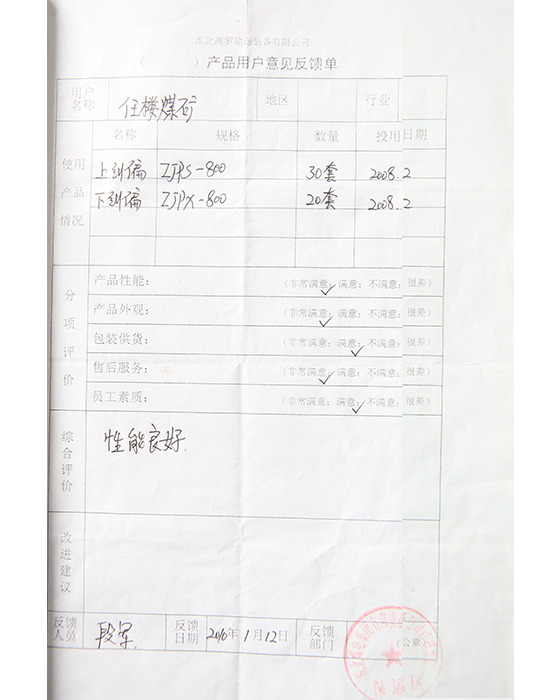 淮北高罗输送装备有限公司
( )产品用户意见反馈单
用户名称 任楼煤矿 地区 行业
使用产品情况 名称 规格 数量 投用日期
上纠偏 ZJPS-800 30套 2008.2
下纠偏 ZJPX-800 20套 2008.2
分项评价
产品性能: (非常满意; 满意; 不满意; 很差)
产品外观: (非常满意; 满意; 不满意; 很差)
包装供货: (非常满意; 满意; 不满意; 很差)
售后服务: (非常满意; 满意; 不满意; 很差)
员工素质: (非常满意; 满意; 不满意; 很差)
综合评价 性能良好.
改进建议
反馈人员 段军 反馈日期 2010年1月12日 反馈部门 (公章)